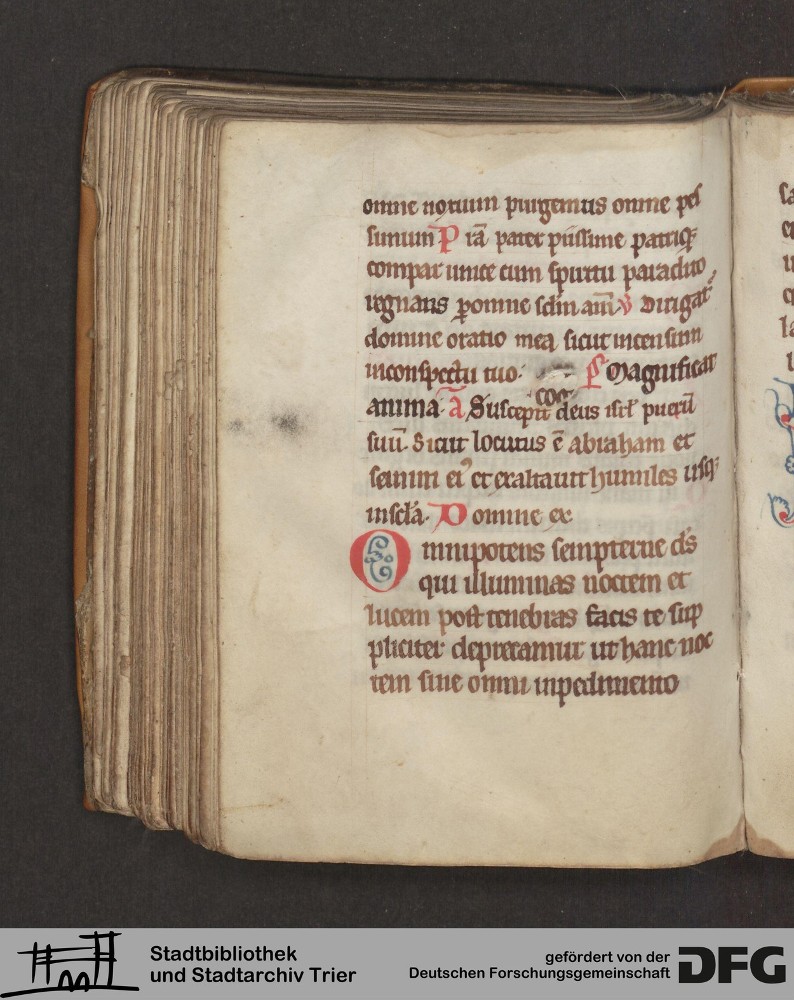 omne noxium purgemus omne pes
simum P̄ ıā pater piissime patriqꝫ
compar unice cum spiritu paraclito
regnans ꝑ omne sclm̄ am̄ v̄ Dirigat᷑
domine oratio mea sicut incensum
in conspectu tuo. ps Magnificat
anima. a̅ Suscepit deus isrl̄ puerū
suū. Sicut locutus ē abraham et
semini ei᷒ et exaltauit humiles usqꝫ
in scl̄a. Domine ex
Omnipotens sempiterne ds̄
qui illuminas noctem et
lucem post tenebras facis te sup
pliciter deprecamur ut hanc noc
tem sine omni inpedimento
Stadtbibliothek
und Stadtarchiv Trier
gefördert von der
Deutschen Forschungsgemeinschaft
DFG